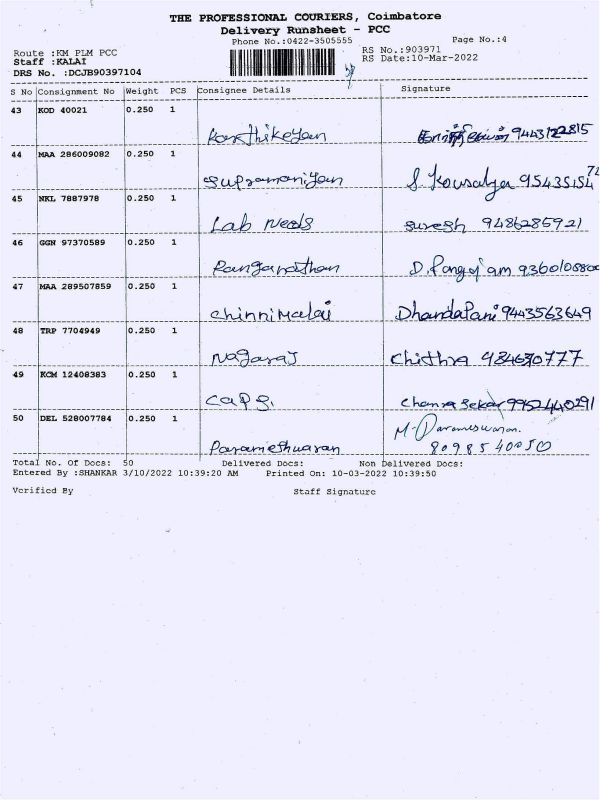 THE PROFESSIONAL COURIERS, Coimbatore
Delivery Runsheet - PCC
Phone No.:0422-3505555 Page No.:4
Route :KM PLM PCC RS No.:903971
Staff :KALAI RS Date:10-Mar-2022
DRS No. :DCJB90397104
S No Consignment No Weight PCS Consignee Details Signature
43 KOD 40021 0.250 1
Karthikeyan 9443122815
44 MAA 286009082 0.250 1
Supramaniyan S. Kousalya 9543515472
45 NKL 7887978 0.250 1
Lab Needs suresh 9486285921
46 GGN 97370589 0.250 1
Ranganathan
47 MAA 289507859 0.250 1
chinniMalai DhandaPani 9443563649
48 TRP 7704949 0.250 1
Nagaraj Chithra
49 KCM 12408383 0.250 1
CaPS. Chanra Sekar 9952440291
50 DEL 528007784 0.250 1 M. Parameswaran.
Parameshwaran 8098540050
Total No. Of Docs: 50 Delivered Docs: Non Delivered Docs:
Entered By :SHANKAR 3/10/2022 10:39:20 AM Printed On: 10-03-2022 10:39:50
Verified By Staff Signature